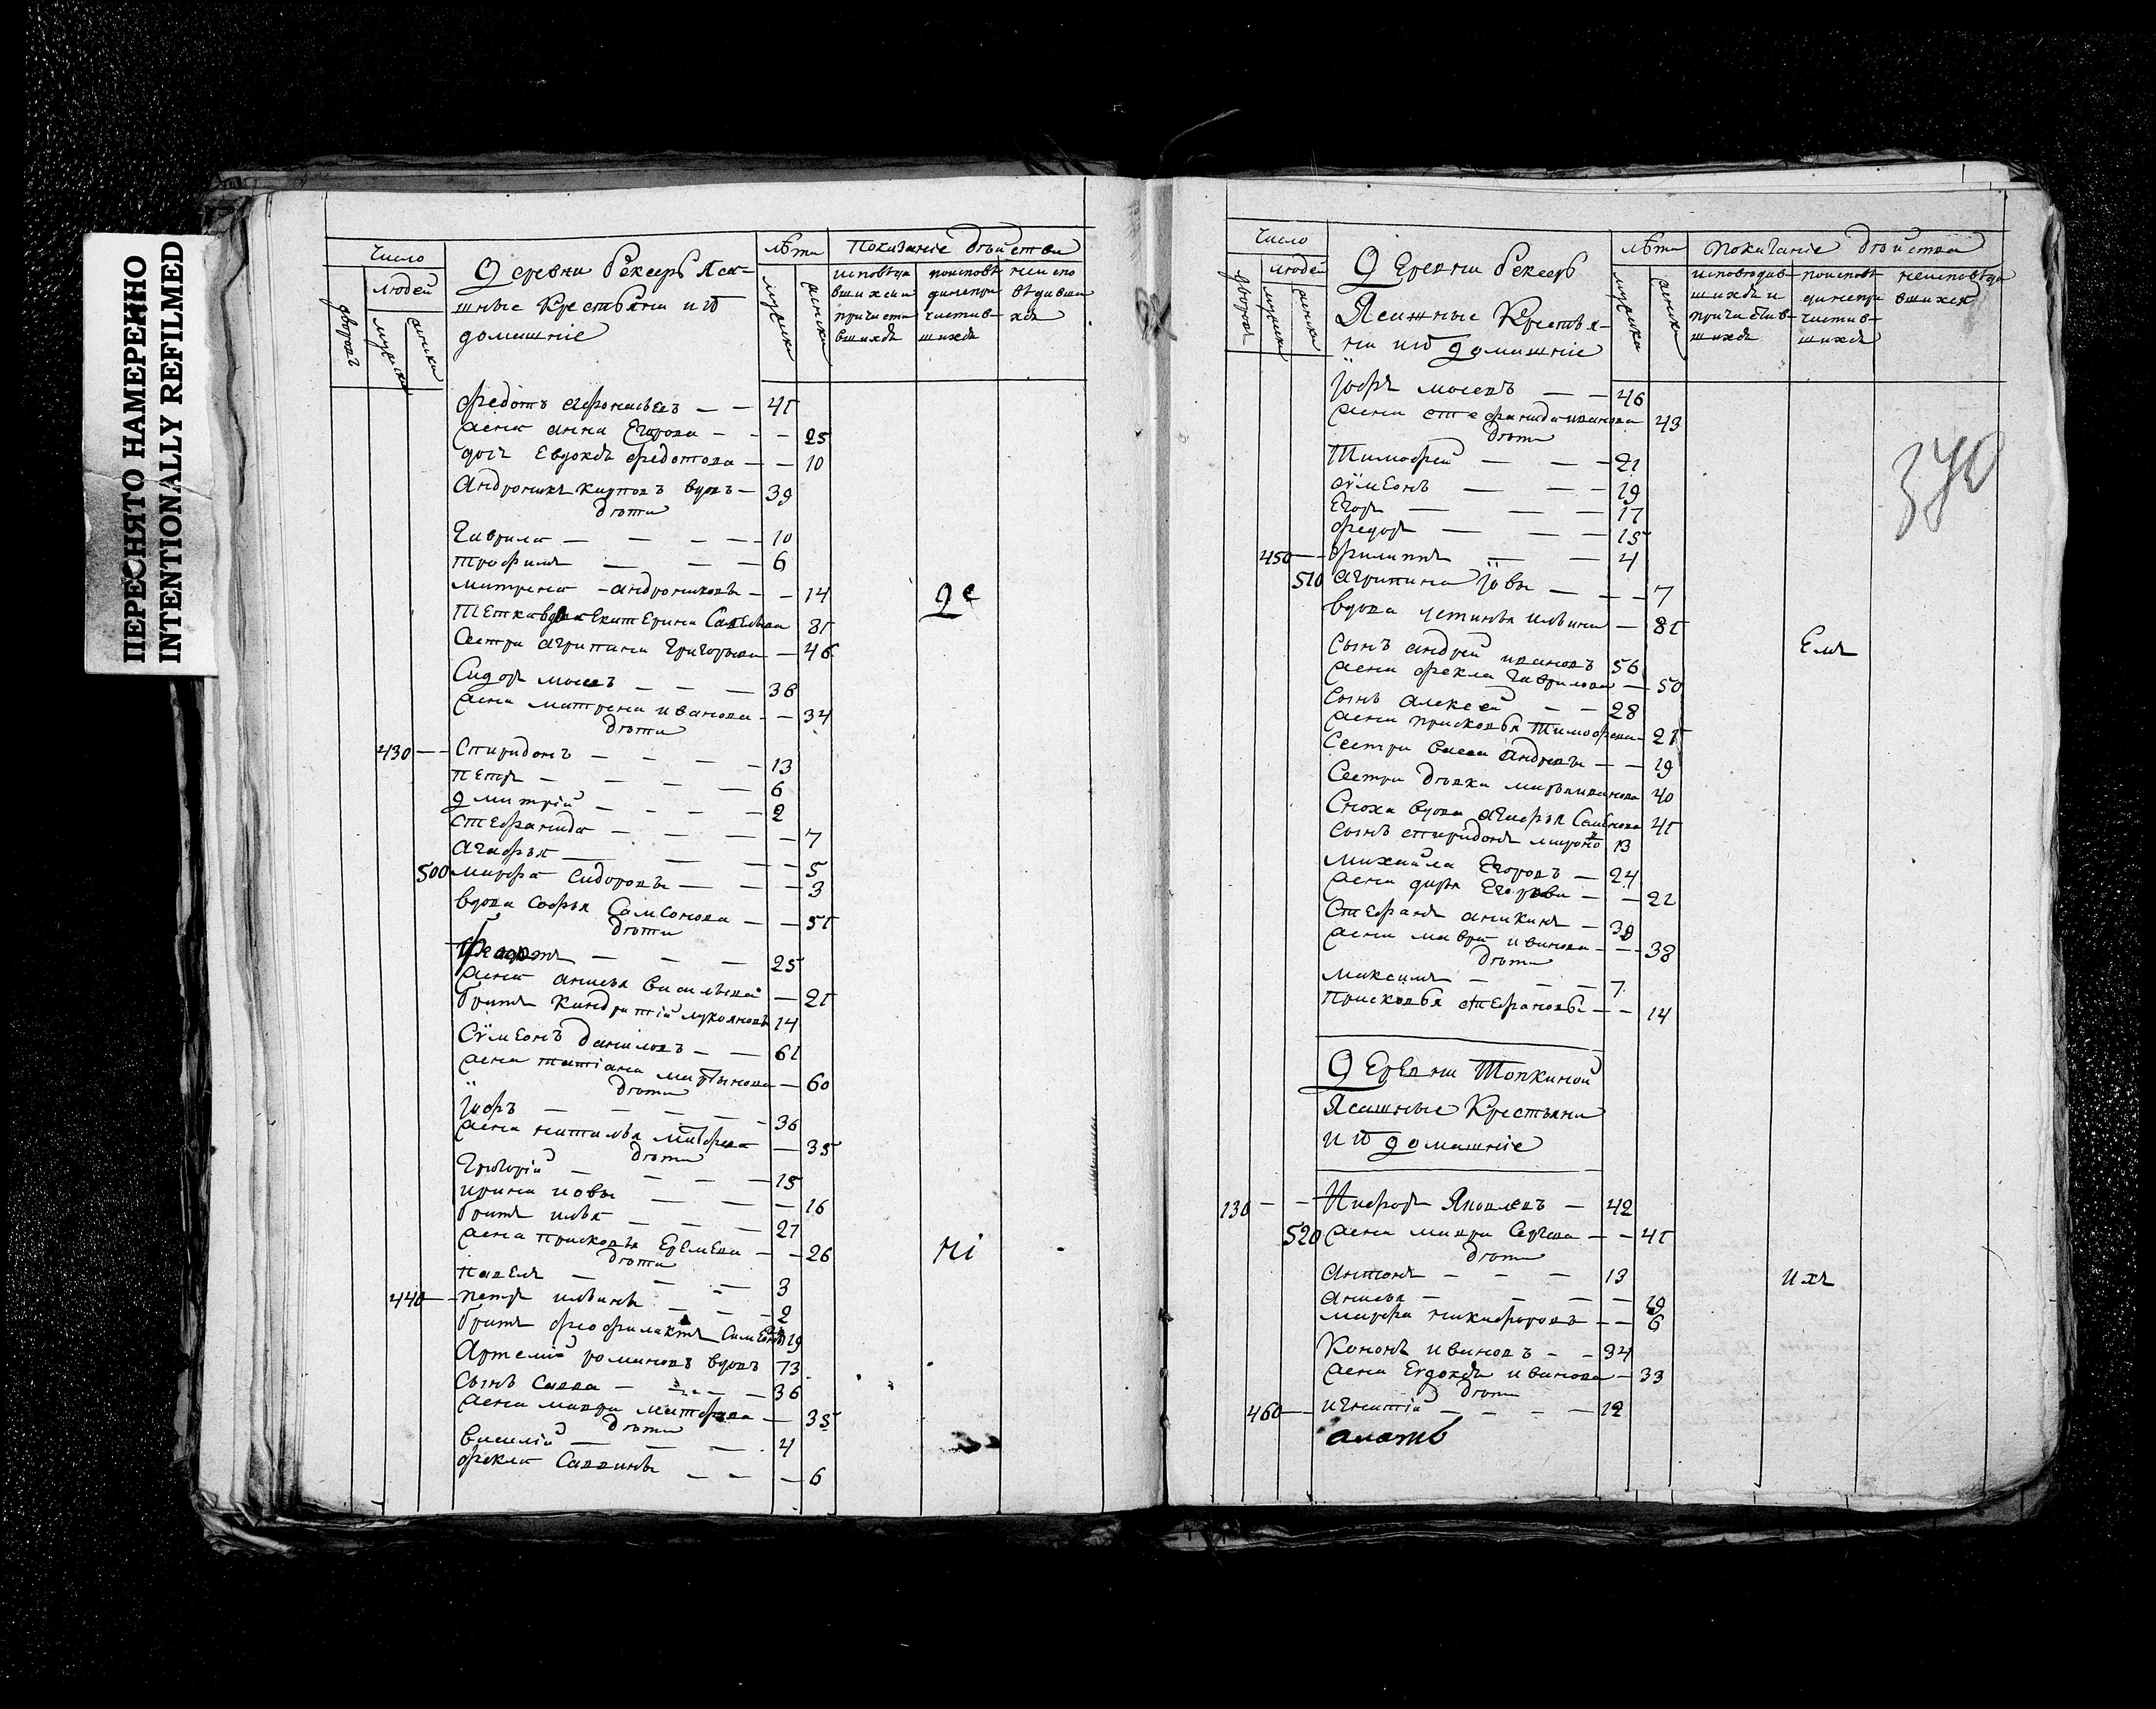 ПЕРЕСНЯТО НАМЕРЕННО
INTENTIONALLY REFILMED
Число
людей
дворовъ
мужска
женска
Деревни Бексеръ Яса-
шные Крестьяни и ѿ
домашніе
лѣта
мужска
женска
Показаніе дѣйства
исповѣда
вшихся и
причасти
вшихся
поисповѣ
динепри
частив-
шихся
неиспо
вѣдавши
хся
Федотъ Афонасьевъ — — 45
жена анна Егорова — — 25
дочь Евдокѣя федотова — — 10
Андроникъ карповъ вдовъ — 39
дѣти
Гаврила — — — — 10
трофимъ — — — 6
матрена — андроникова — — 14
тетка вдова Екатерина Савельева 85
Сестра агрипина Григорьева — 46
Сидоръ — — — 38
жена матрена иванова — — 34
дѣти
430 — — Спиридонъ — — — — 13
петръ — — — — 6
дмитрій — — — — 2
стефанида — — — — 7
Агафья — — — — 5
500 марфа Сидорова — — — 3
вдова Софья Самсонова — — 55
дѣти
— — — 25
жена анисья Васильева — 25
братъ Кандратій лукояновъ 14
Сѵмеонъ даниловъ — — 61
жена татіана мартынова — 60
дѣти
Іовъ — — — — 36
жена наталья Матфеева — 35
дѣти
Григорій — — — — 15
ирина иовы — — — 16
братъ илья — — — 27
жена прасковья Еремеева — — 26
дѣти
павелъ — — — 3
440 — — петръ ильины — — — 2
братъ феофилактъ Симеоновъ 19
Артемій романовъ вдовъ 73
сынъ Савва — — — — 36
жена мавра матфеева — 35
дѣти
василій — — — 4
фекла Саввины — — — 6
Де
ні
Число
людей
дворовъ
мужска
женска
Деревни Бексеръ
Ясашные Крестья-
ни и ѿ домашніе
лѣта
мужска
женска
Показаніе дѣйства
исповѣдав-
шихся и
причастив-
шихся
поисповѣ
динепри
частив-
шихся
неисповѣда
вшихся
340
Іовъ — — 46
жена стефанида иванова 43
дѣти
Тимофей — — — 21
сѵмеонъ — — — 19
Егоръ — — — 17
федоръ — — — 15
450 — — филиппъ — — 4
510 агрипина Іовы — — — 7
вдова устинья ильина — 85
Сынъ андрей ивановъ 56
жена фекла Гаврилова — 50
сынъ алексей — — 28
жена прасковья Тимофеева — 25
Сестра васса андреевы — — 19
Сестра дѣвка марья иванова 40
Сноха вдова агафья Семенова 45
сынъ спиридонъ мироно 13
михайла Егоровъ — 24
жена дарья Егорова — — 22
Стефанъ аникинъ — 39
жена мавра иванова — — 38
дѣти
максимъ — — — 7
прасковья стефановы — — 14
Емъ
Деревни Топкиной
Ясашные Крестьяни
и ѿ домашніе
130 — — Никифоръ Яковлевъ — 42
520 жена мавра Сергеева — — 45
дѣти
антонъ — — — 13
анисья — — — — 19
марфа никифоровы — — 6
Кононъ ивановъ — — 34
жена Евдокѣя иванова — 33
дѣти
460 — — игнатій — — — — 12
ихъ